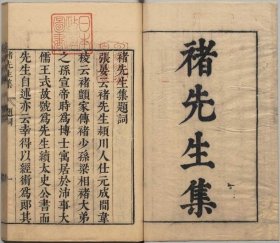 褚先生集
褚先生集題詞
張晏云褚先生潁川人仕元成間韋
稜云褚顗家傳褚少孫梁相褚大弟
之孫宣帝時為博士寓居於沛事大
儒王式故號為先生續太史公書而
先生自述亦云幸得以經術為郎其
褚先生集 題詞 一